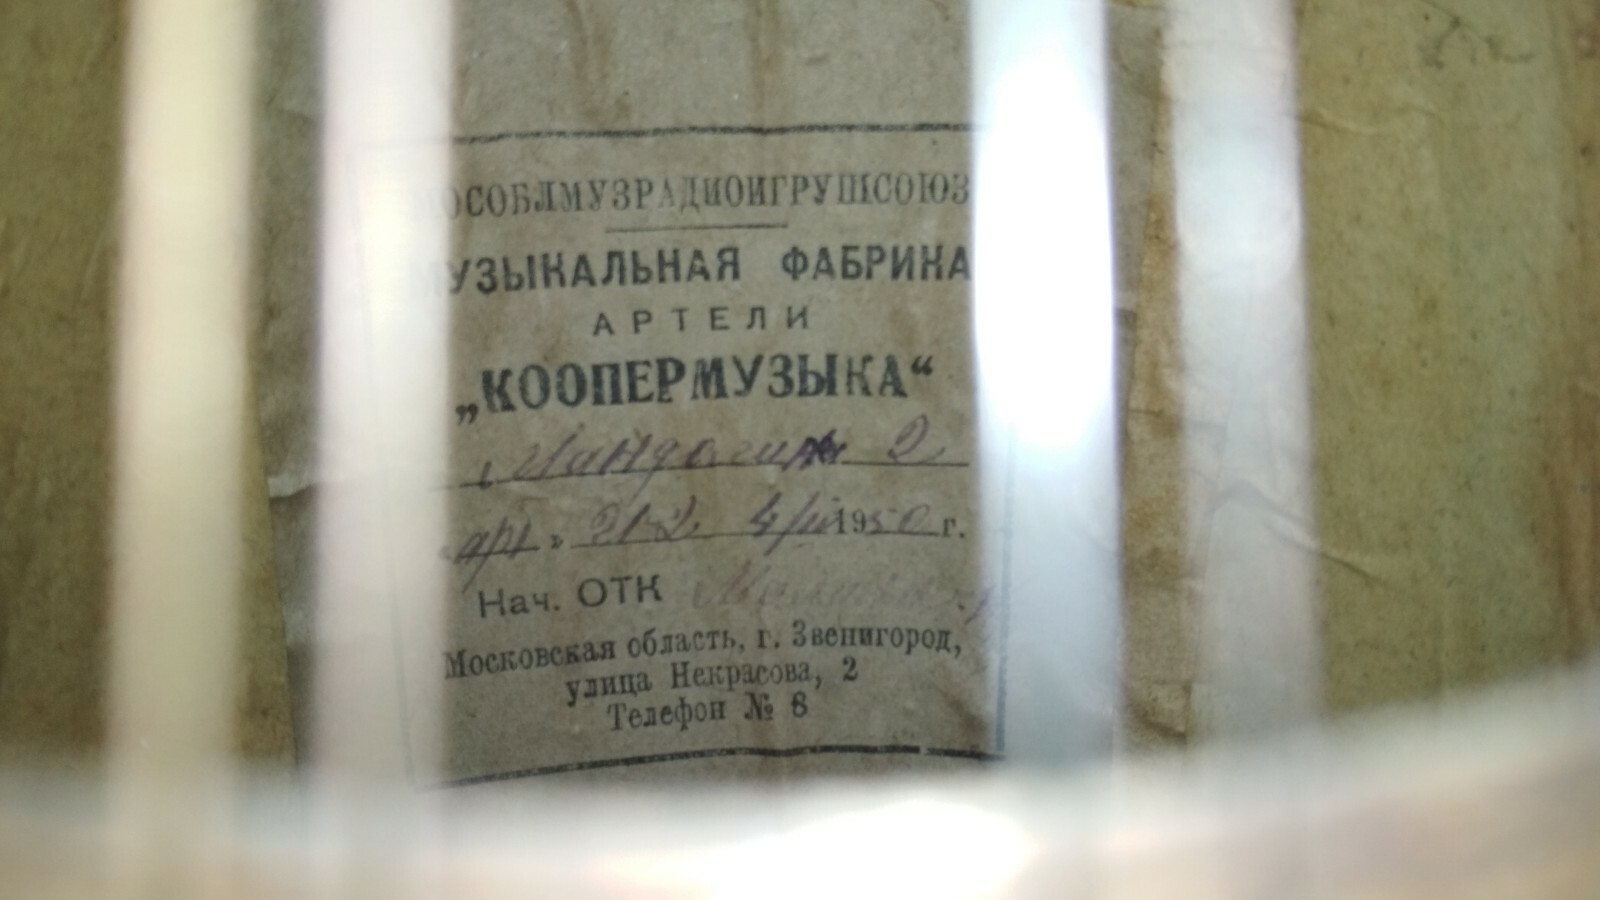 МОСОБЛМУЗРАДИОИГРУШСОЮЗ
МУЗЫКАЛЬНАЯ ФАБРИКА
АРТЕЛИ
„КООПЕРМУЗЫКА“
Мандолина 2
арт 212 1950 г.
Нач. ОТК
Московская область, г. Звенигород,
улица Некрасова, 2
Телефон № 8